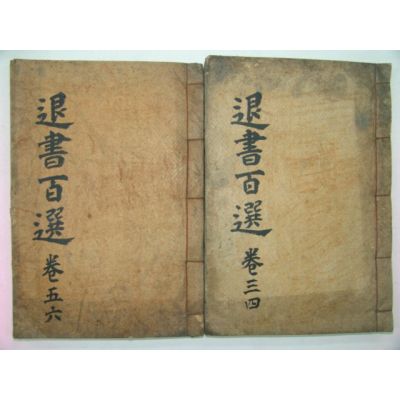 退書百選
卷三四
退書百選
卷五六